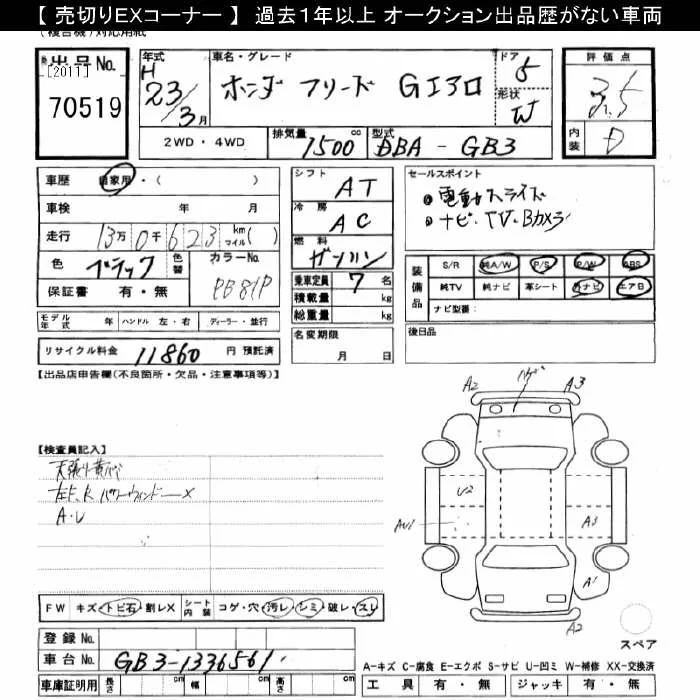 【 売切りEXコーナー 】 過去1年以上 オークション出品歴がない車両
(複合機)対応用紙
出品No. [2011] 70519
年式 H 23/3月
車名・グレード ホンダ フリード Gエアロ
ドア 5
形状 W
評価点 3.5
内装 D
2WD・4WD 排気量 1500 cc 型式 DBA-GB3
車歴 自家用・( )
車検 年 月
走行 13万0千623 km マイル( )
色 ブラック 色替 カラーNo.
保証書 有・無
シフト AT
冷房 AC
燃料 ガソリン
乗車定員 7 名
積載量 kg
総重量 kg
名変期限 月 日
セールスポイント
電動スライド
ナビ・TV・Bカメラ
装備品 S/R 純A/W P/S P/W ABS
純TV 純ナビ 革シート 外ナビ エアB
ナビ型番:
後日品
モデル年式 年 ハンドル 左・右 ディーラー・並行
リサイクル料金 11860 円 預託済
【出品店申告欄(不良箇所・欠品・注意事項等)】
A2 ハゲ A3
【検査員記入】
パワーウィンドーX
A・U
U2
AU1 A3
A1
A2
FW キズ・トビ石・割レX シート内装 コゲ・穴・汚レ・シミ・破レ・スレ
スペア
登録No.
車台No. GB3-1336561
A-キズ C-腐食 E-エクボ S-サビ U-凹ミ W-補修 XX-交換済
車庫証明用 長さ cm 幅 cm 高さ cm
工具 有・無 ジャッキ 有・無